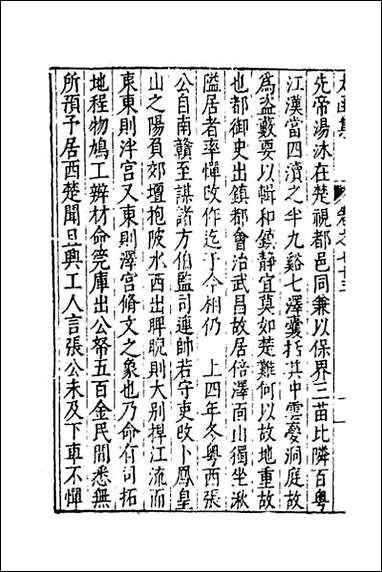 太函集 卷之七十三
先帝湯沐在楚視都邑同兼以保界三苗比隣百粤
江漢當四瀆之半九谿七澤囊括其中雲夢洞庭故
為盗藪要以輯和鎮静宜莫如楚難何以故地重故
也都御史出鎮都會治武昌故居倍澤面山獨坐湫
隘居者率憚改作迄于今相仍 上四年冬粤西張
公自南贛至謀諸方伯監司連帥若守吏改卜鳳皇
山之陽負郊壇抱陂水西出睥睨則大别捍江流而
東東則泮宫又東則澤宫脩文之象也乃命有司拓
地程物鳩工辨材命筦庫出公帑五百金民間悉無
所預予居西楚聞且興工人言張公未及下車不憚